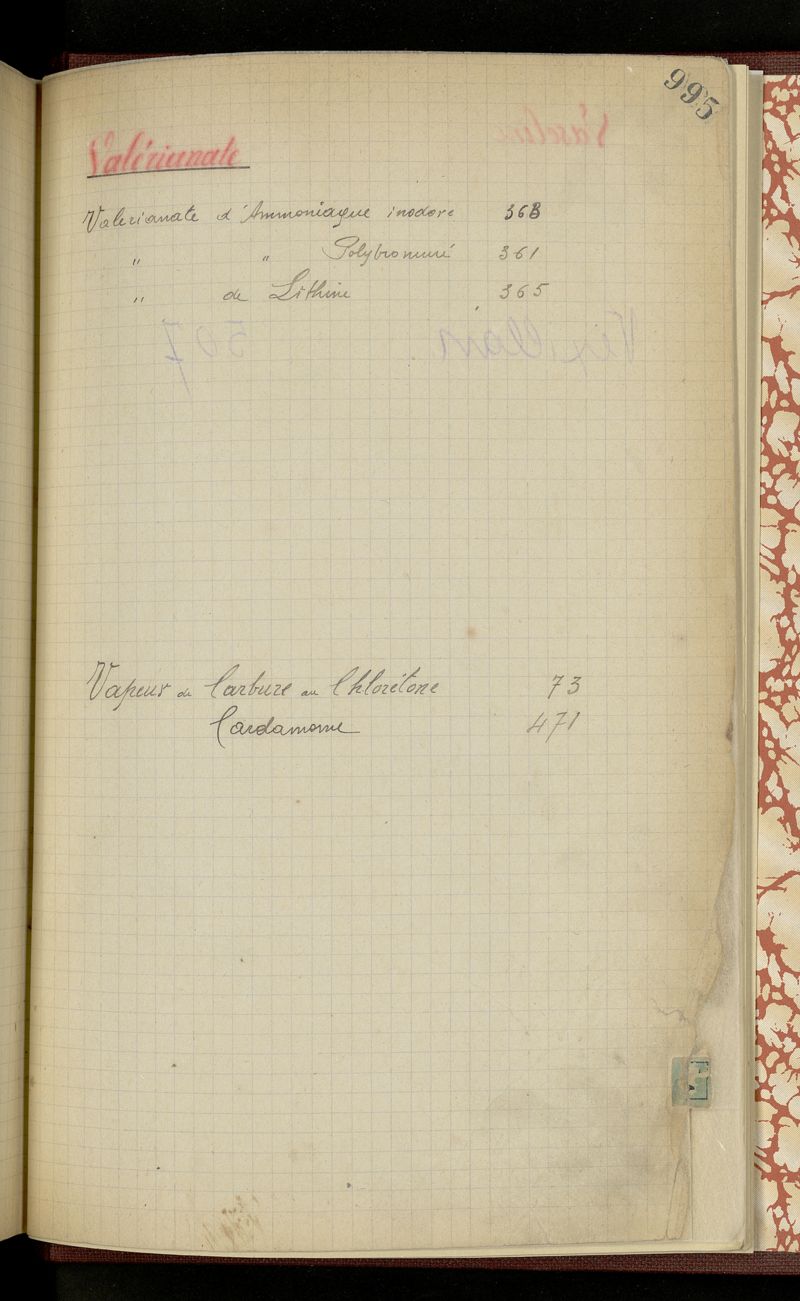 995
Valérianate
Valerianate d'Ammoniaque inodore 368
" " Polybromuré 361
" de Lithine 365
Vapeur de Carbure au Chlorétone 73
Cardamome 471